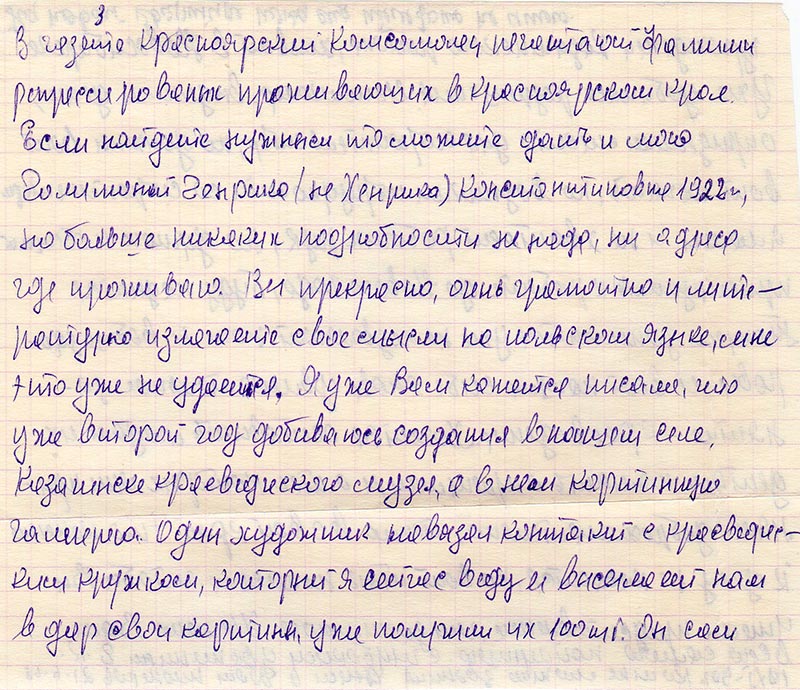 3
В газете Красноярский Комсомолец печатают фамилии
репрессированых проживающих в Красноярском крае.
Если найдете нужным то можете дать и мою
Генрика (не Хенрика) Константиновна 1922 г.,
но больше никаких подробностей не надо, ни адреса
где проживаю. Вы прекрасно, очень грамотно и лите-
ратурно излагаете свое мысли на польском языке, мне
это уже не удается. Я уже Вам кажется писала, что
уже второй год добиваюсь создания в нашем селе,
Казачинске краеведческого музея, а в нем картинную
галлерею. Один художник навязал контакт с краеведчес-
ким кружком, который я сейчас веду и высылает нам
в дар свои картины, уже получили их 100 шт. Он сам